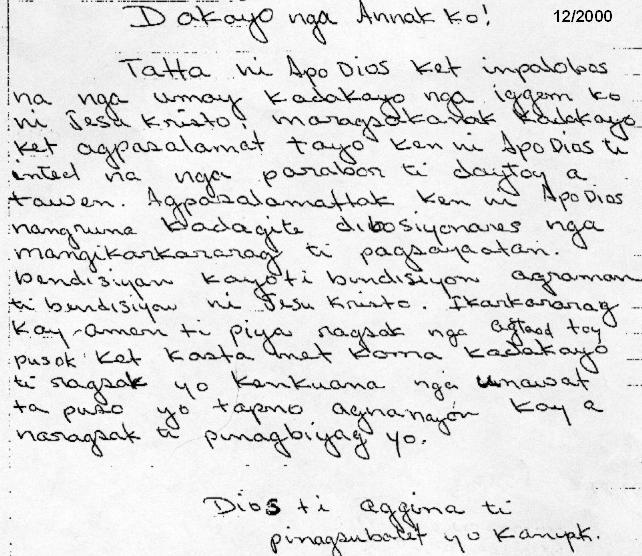 Dakayo nga Annak ko!
12/2000
Tatta ni Apo Dios ket inpalobos
na nga umay kadakayo nga iggem ko
ni Jesu Kristo, maragsakanak kadakayo
ket agpasalamat tayo ken ni Apo Dios ti
inted na nga parabor ti daytoy a
tawen. Agpasalamattak ken ni Apo Dios
nangruna kadagite dibosiyonares nga
mangikarkararag ti pagsayaatan.
bendisiyan kayo ti bindisiyon agraman
ti bendisiyon ni Jesu Kristo. Ikarkararag
kay-amen ti piya ragsak nga agtaud toy
pusok ket kasta met koma kadakayo
ti ragsak yo kenkuana nga umawat
ta puso yo tapno agnanayon kay a
naragsak ti pinagbiyag yo.
Dios ti aggina ti
pinagsubalit yo kanipk.